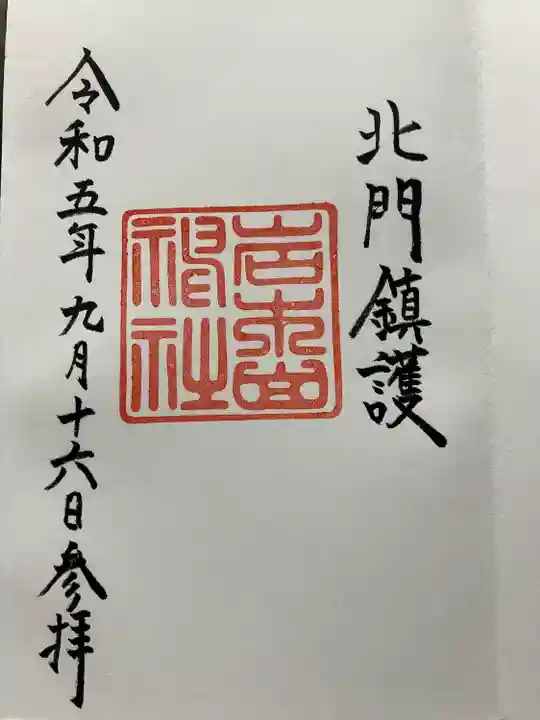 北門鎮護
岩木山
神社
令和五年九月十六日参拝